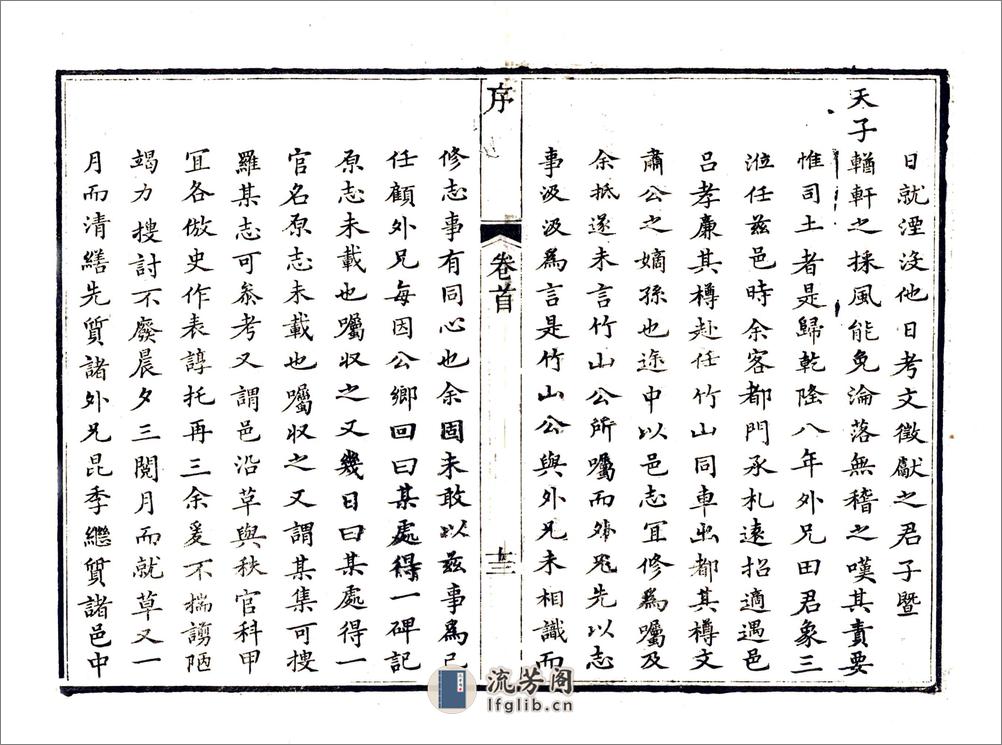 日就湮沒他日考文徵獻之君子暨
天子輶軒之採風能免淪落無稽之嘆其責要
惟司土者是歸乾隆八年外兄田君象三
涖任兹邑時余客都門承札遠招適遇邑
呂孝廉其樽赴任竹山同車出都其樽文
肅公之嫡孫也途中以邑志宜修為囑及
余抵遂未言竹山公所囑而外兄先以志
事汲汲為言是竹山公與外兄未相識而
序
卷首
十三
修志事有同心也余固未敢以兹事為己
任顧外兄每因公鄉回曰某處得一碑記
原志未載也囑収之又幾日曰某處得一
官名原志未載也囑収之又謂某集可搜
羅某志可叅考又謂邑沿革與秩官科甲
宜各倣史作表諄托再三余爰不揣謭陋
竭力搜討不廢晨夕三閱月而就草又一
月而清繕先質諸外兄昆季繼質諸邑中
流芳阁
lfglib.cn